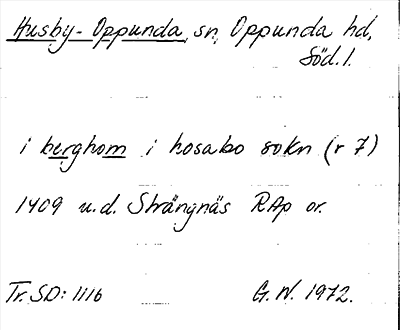 Husby-Oppunda, sn, Oppunda hd,
Söd. l.
i berghom i hosabo sokn (r 7)
1409 u.d. Strängnäs RAp or.
Tr. SD: 1116
G. W. 1972.